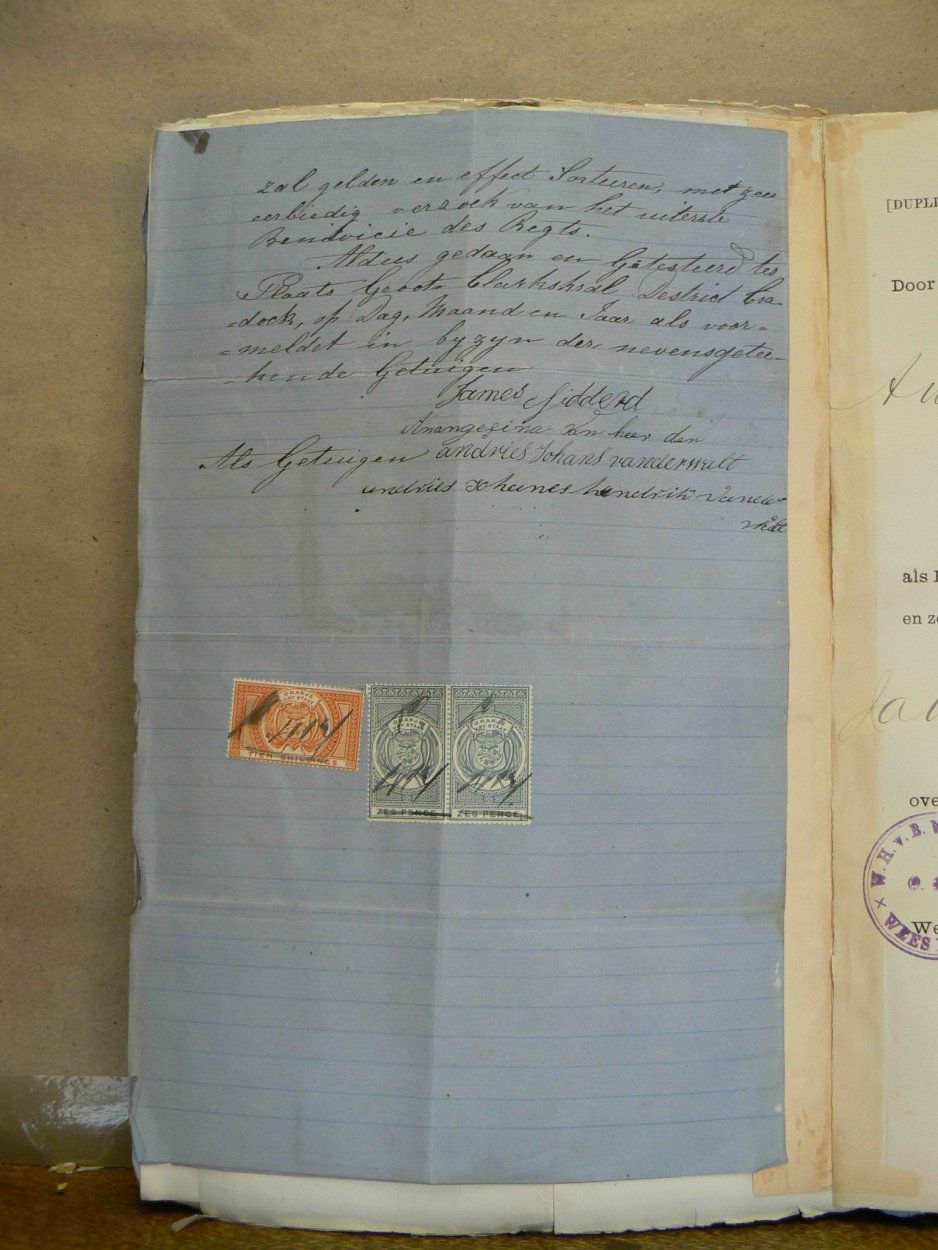 zal gelden en effect Sorteeren, met zeer
eerbiedig verzoek van het uiterste
Benivicie des Regts.
Aldus gedaan en Getesteerd ter
Plaats Groot Clarkskral Destrict Cra-
=dock, op Dag, Maand en Jaar als voor=
=meldet in byzyn der nevensgetee-
=kende Getuigen
James Siddord
van heer den
Als Getuigen andries Johans vanderwalt
andries Johanes hendrik vander
walt
ORANJE
VRY STAAT
TIEN SHILLINGS
ORANJE
VRY STAAT
ZES PENCE
ORANJE
VRY STAAT
ZES PENCE
[DUPLI
Door
als
en
Ja
ove
W. H. v. B.
WEES
We